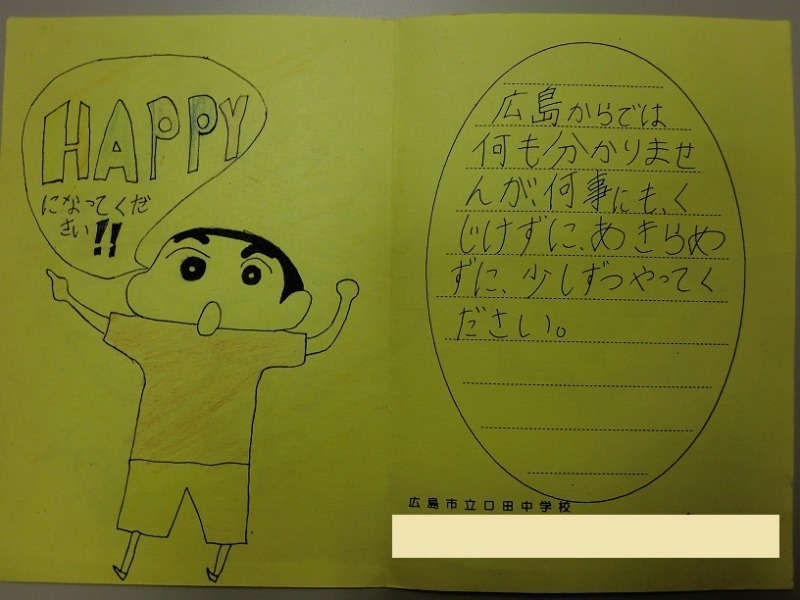 HAPPY
になってくだ
さい!!
広島からでは
何も分かりませ
んが、何事にも、く
じけずに、あきらめ
ずに、少しずつやってく
ださい。
広島市立口田中学校